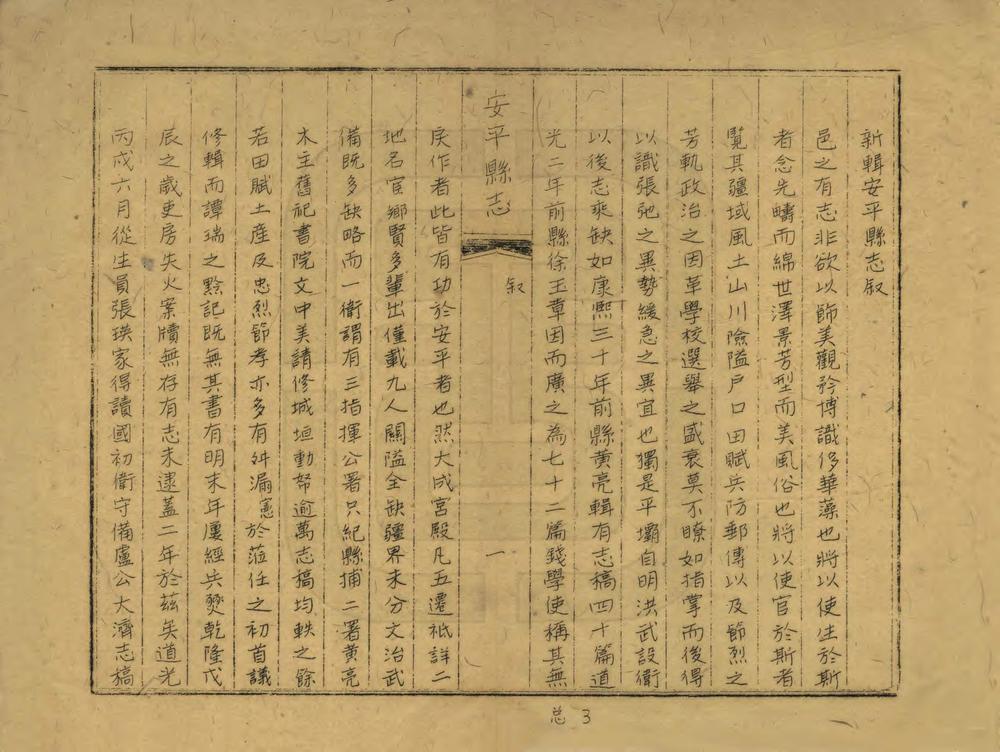 新輯安平縣志叙
邑之有志非欲以飾美觀矜博識侈華藻也將以使生於斯
者念先疇而綿世澤景芳型而美風俗也將以使官於斯者
覽其疆域風土山川險隘戶口田賦兵防郵傳以及節烈之
芳軌政治之因革學校選舉之盛衰莫不瞭如指掌而後得
以識張弛之異勢緩急之異宜也獨是平壩自明洪武設衛
以後志乘缺如康熙三十年前縣黄亮輯有志稿四十篇道
光二年前縣徐玉章因而廣之為七十二篇錢學使稱其無
安平縣志
叙
一
戾作者此皆有功於安平者也然大成宮殿凡五遷祗詳二
地名宦鄉賢多輩出僅載九人關隘全缺疆界未分文治武
備既多缺略而一衛謂有三指揮公署只紀縣捕二署黄亮
木主舊祀書院文中美請修城垣動帑逾萬志稿均軼之餘
若田賦土産及忠烈節孝亦多有舛漏憲於蒞任之初首議
修輯而譚瑞之黔記既無其書有明末年屢經兵燹乾隆戊
辰之歲吏房失火案牘無存有志未逮蓋二年於茲矣道光
丙戌六月從生員張瑛家得讀國初衛守備盧公大濟志稿
总 3